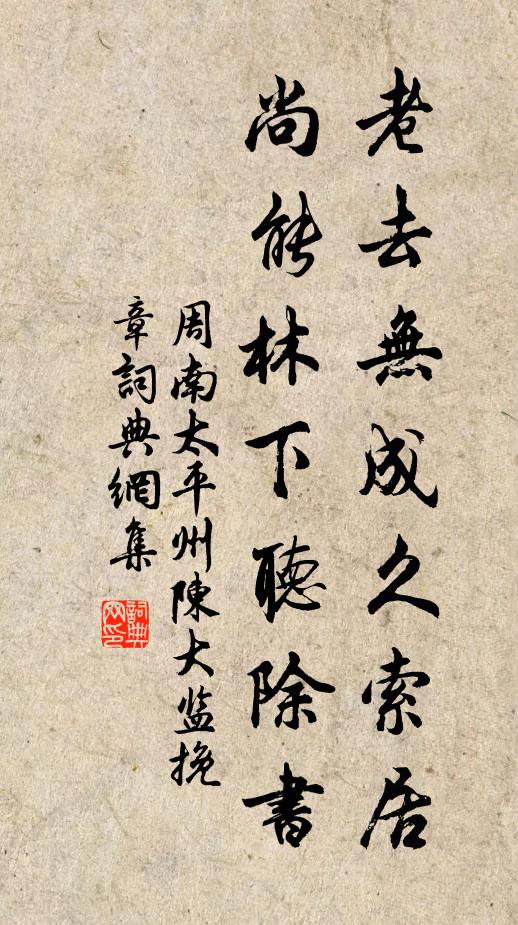 老去無成久索居
尚能林下聽除書
周南太平州陳大監挽
章詞典網集
詞典網印